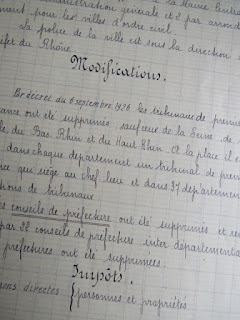 administration générale et 2 par arrond
ment pour les villes d'ordre civil.
La police de la ville est sous la direction
éfet du Rhône.
Modifications.
Par décret du 6 septembre 1926 les tribunaux de premi
ance ont été supprimés sauf ceux de la Seine, de
du Bas-Rhin et du Haut Rhin. A la place il e
dans chaque département un tribunal de premi
ce qui siège au chef lieu et dans 37 départemen
ons de tribunaux
conseils de préfecture ont été supprimés et rem
par 22 conseils de préfecture inter départementa
préfectures ont été supprimées.
Impôts.
directes { personnes et propriétés